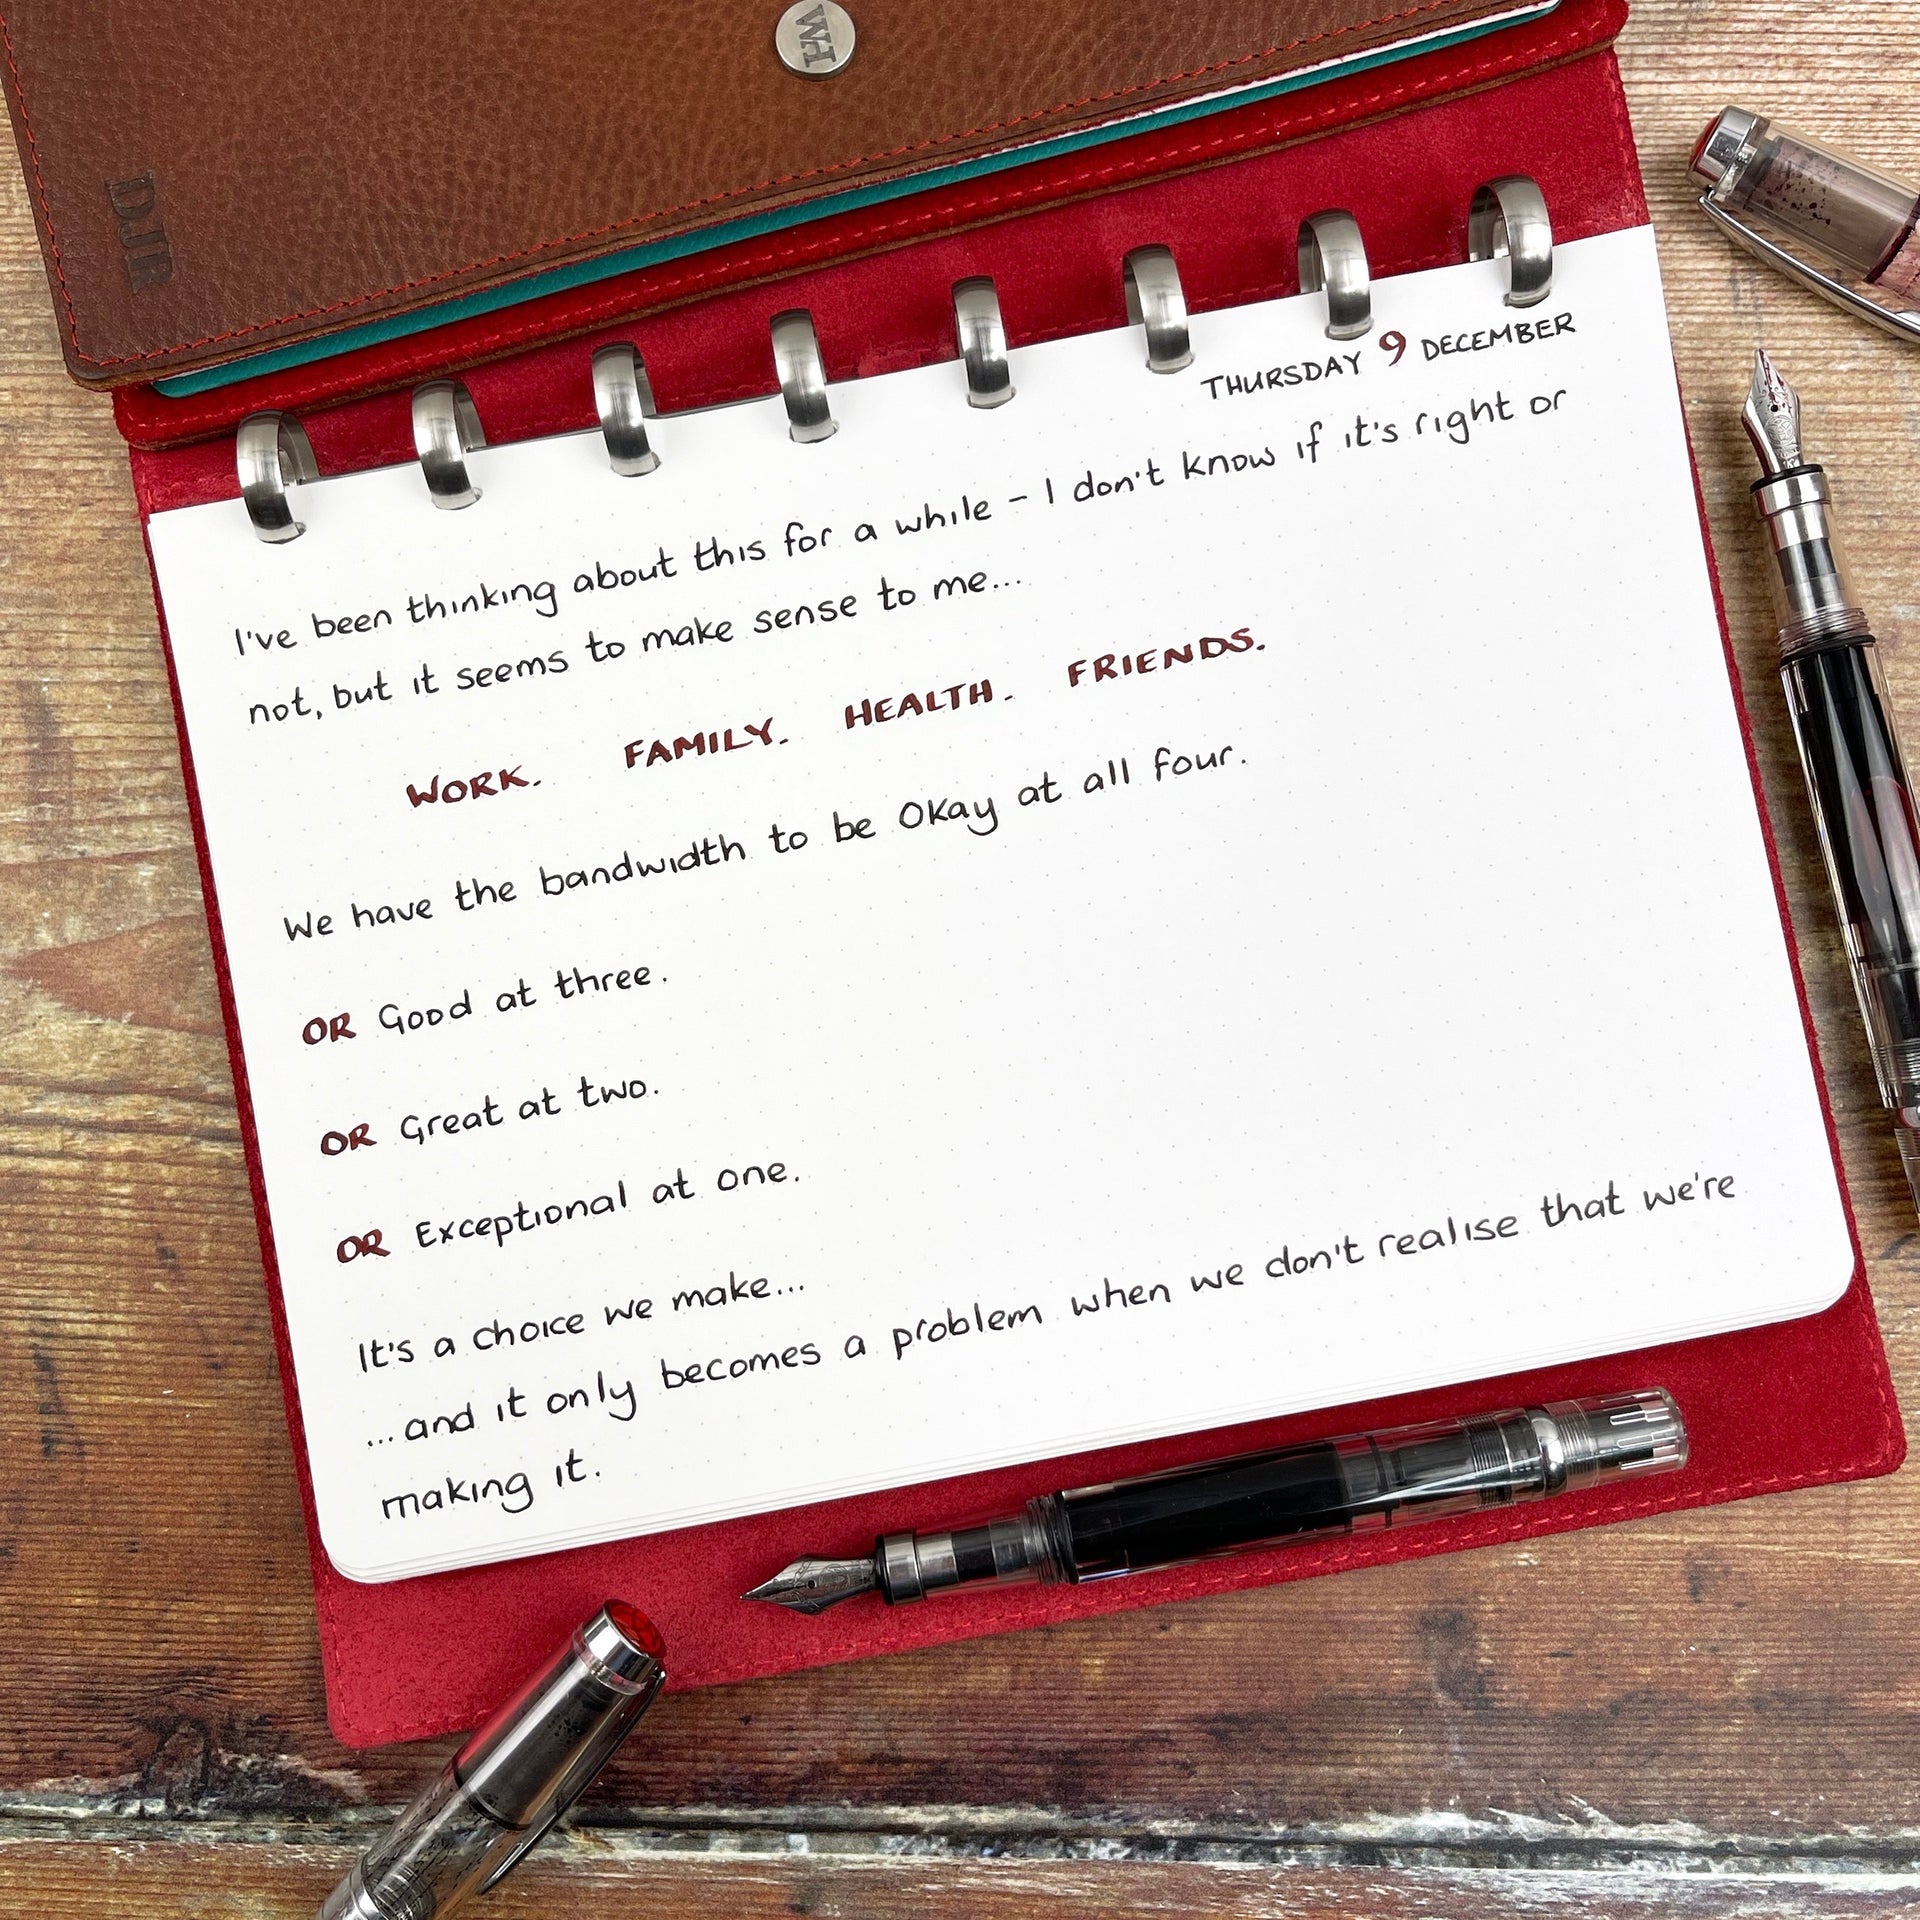 WH
DJR
THURSDAY 9 DECEMBER
I've been thinking about this for a while - I don't know if it's right or
not, but it seems to make sense to me...
WORK. FAMILY. HEALTH. FRIENDS.
We have the bandwidth to be Okay at all four.
OR Good at three.
OR Great at two.
OR Exceptional at one.
It's a choice we make...
...and it only becomes a problem when we don't realise that we're
making it.